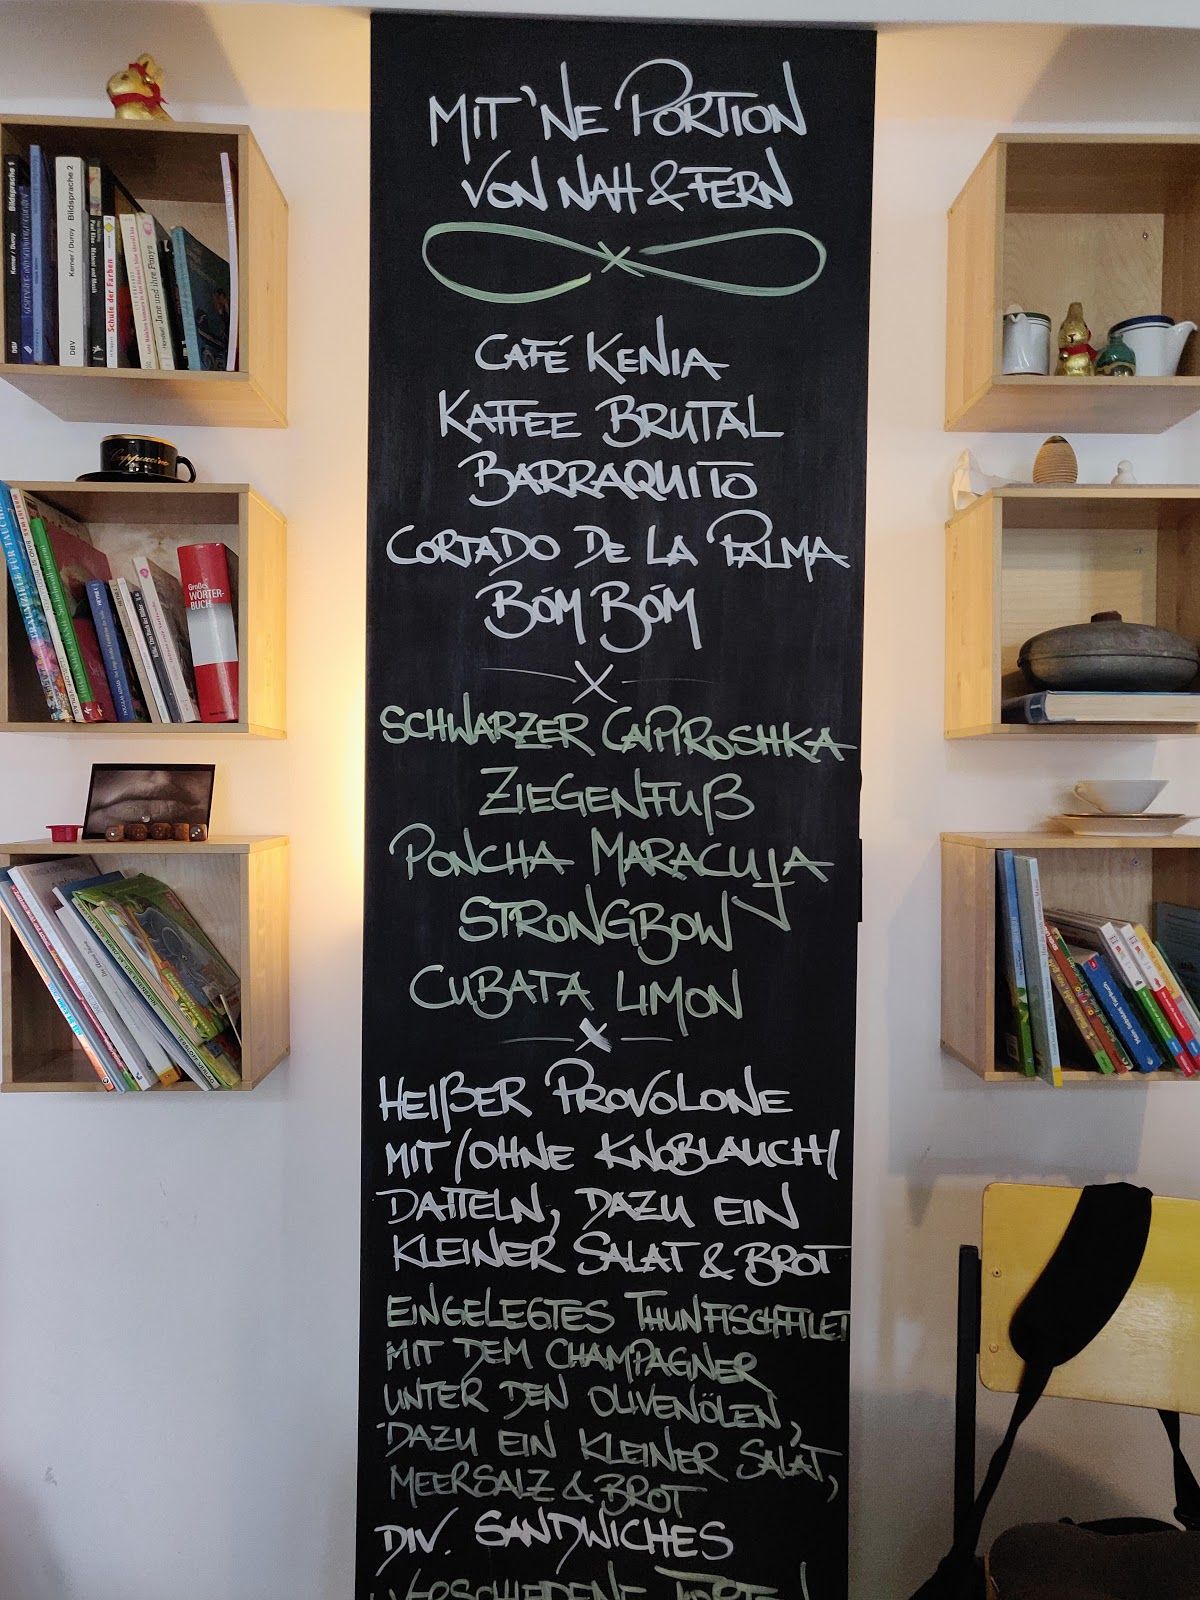 MIT 'NE PORTION
VON NAH & FERN
CAFÉ KENIA
KAFFEE BRUTAL
BARRAQUITO
CORTADO DE LA PALMA
BÓM BÓM
X
SCHWARZER CAIPIROSHKA
ZIEGENFUß
PONCHA MARACUJA
STRONGBOW
CUBATA LIMON
X
HEIßER PROVOLONE
MIT/OHNE KNOBLAUCH/
DATTELN, DAZU EIN
KLEINER SALAT & BROT
EINGELEGTES THUNFISCHFILET
MIT DEM CHAMPAGNER
UNTER DEN OLIVENÖLEN,
DAZU EIN KLEINER SALAT,
MEERSALZ & BROT
DIV. SANDWICHES
VERSCHIEDENE
Kerner / Duroy Bildsprache 1
DBV
Kerner / Duroy Bildsprache 2
DBV
Schule der Farben
Jane und ihre Ponys
Cappuccino
Großes
WÖRTER-
BUCH